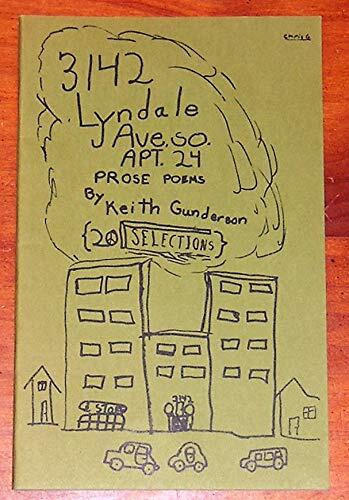 Chris G
3142
Lyndale
Ave. So.
APT. 24
PROSE POEMS
By Keith Gunderson
{20 SELECTIONS}
3142
STORE